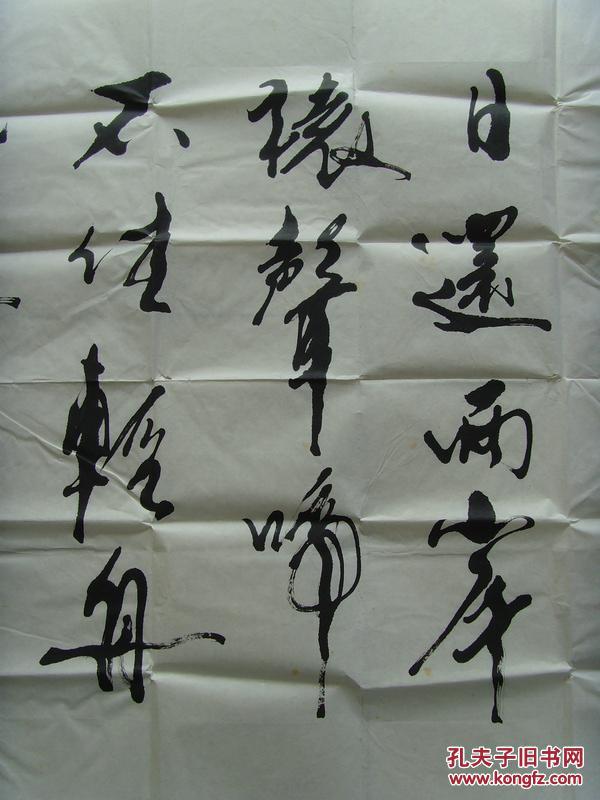 日還兩岸
猿聲啼
不住輕舟
孔夫子旧书网
www.kongfz.com